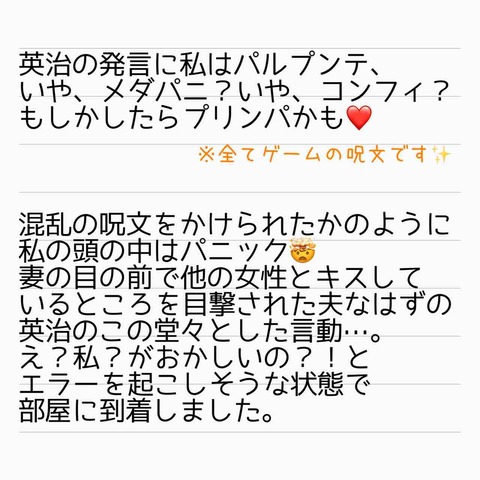 英治の発言に私はパルプンテ、
いや、メダパニ？いや、コンフィ？
もしかしたらプリンパかも❤️
※全てゲームの呪文です✨
混乱の呪文をかけられたかのように
私の頭の中はパニック🤯
妻の目の前で他の女性とキスして
いるところを目撃された夫なはずの
英治のこの堂々とした言動…。
え？私？がおかしいの？！と
エラーを起こしそうな状態で
部屋に到着しました。